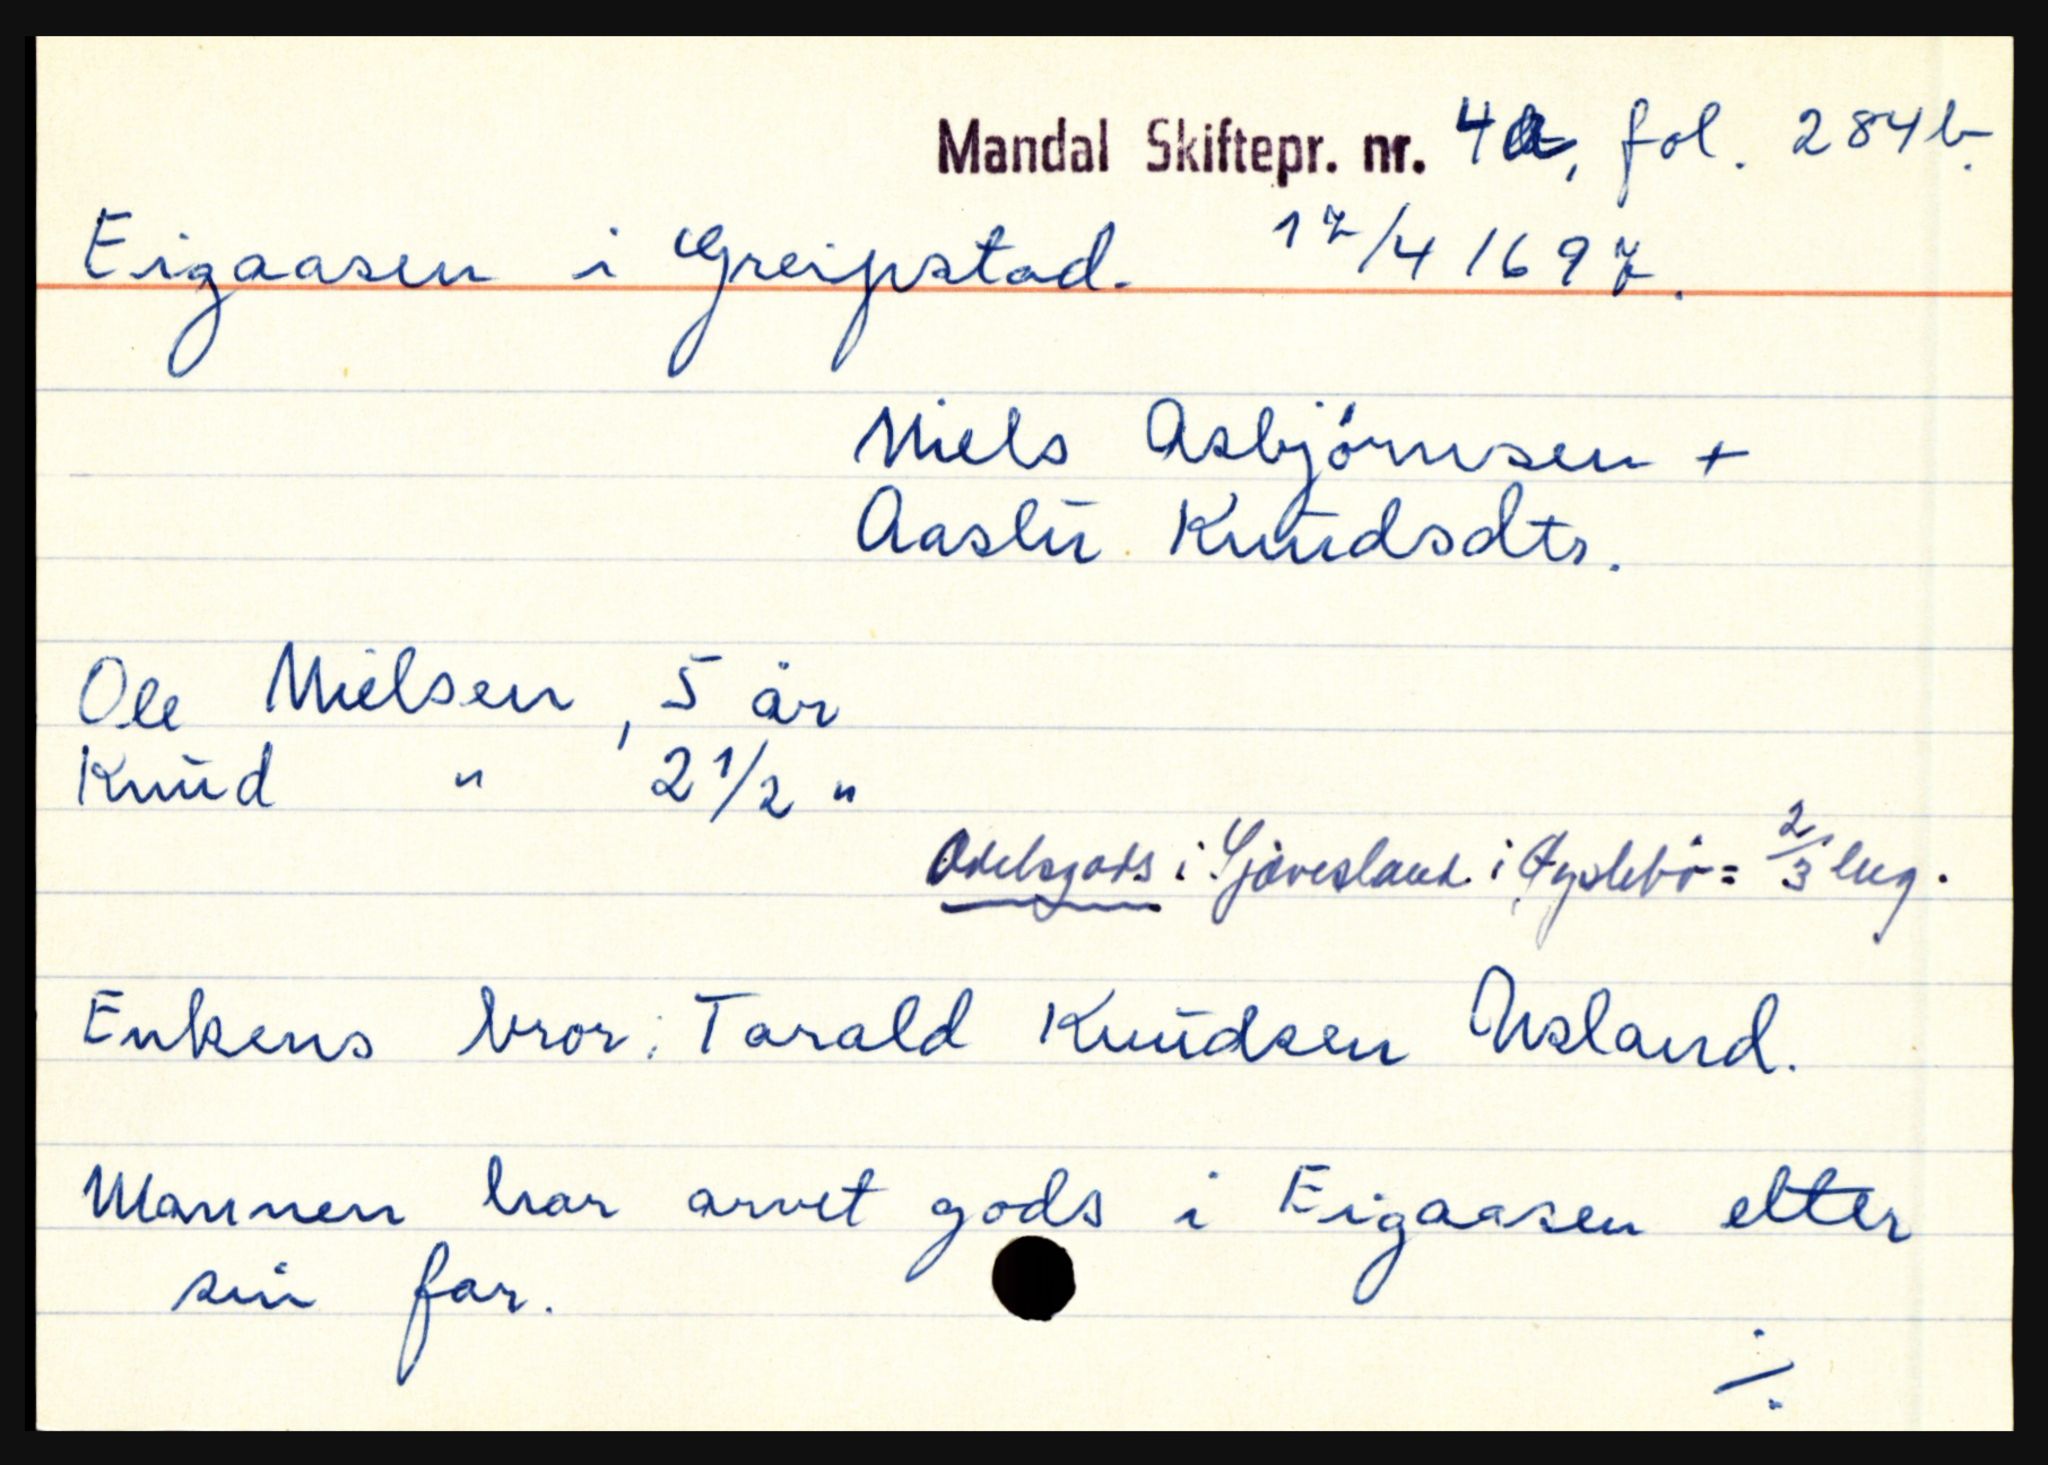 Mandal Skiftepr. nr. 4a, fol. 284b.
Eigaasen i Greipstad. 17/4 1697.
Niels Asbjörnsen +
Aaslu Knudsdtr.
Ole Nielsen, 5 år
Knud " 2 1/2 "
Odelsgods i Sjøvesland i Øyslebö = 2/3 lug.
Enkens bror: Tarald Knudsen Usland.
Mannen har arvet gods i Eigaasen etter
sin far.
÷